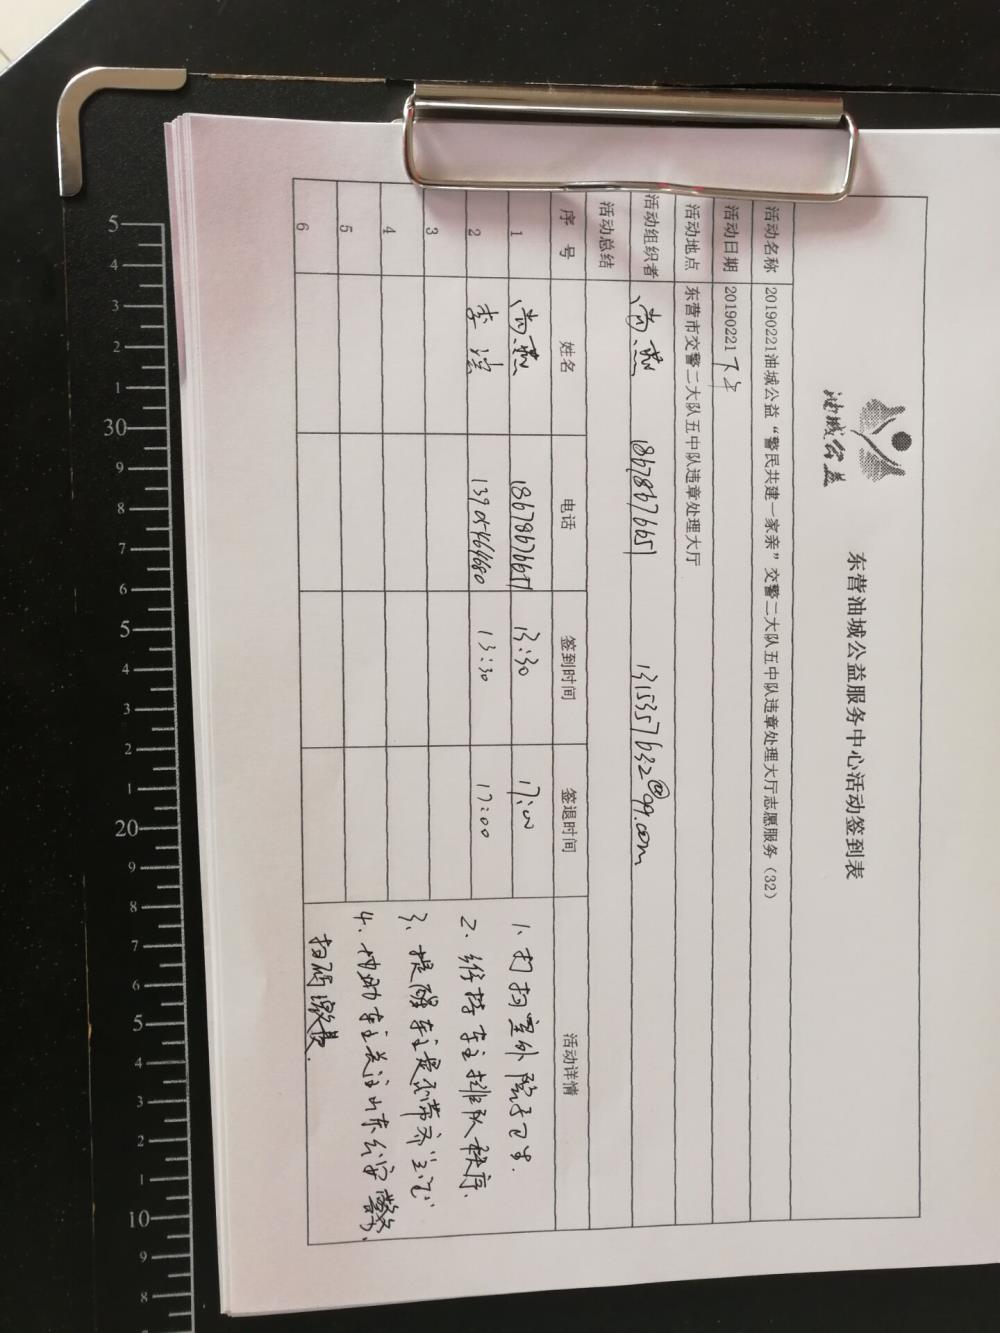 油城公益
东营油城公益服务中心活动签到表
活动名称 20190221油城公益“警民共建一家亲”交警二大队五中队违章处理大厅志愿服务（32）
活动日期 20190221下午
活动地点 东营市交警二大队五中队违章处理大厅
活动组织者 尚燕 18678676651 1315357632@qq.com
活动总结
序 号 姓名 电话 签到时间 签退时间 活动详情
1 尚燕 18678676651 13:30 17:00
2 李 13905464680 13:30 17:00
3
4
5
6
1、打扫室外院子卫生.
2、维持车主排队秩序.
3、提醒车主是否带齐“三证”
4、协助车主关注山东公安警务.
扫码缴费.
5
4
3
2
1
30
9
8
7
6
5
4
3
2
1
20
9
8
7
6
5
4
3
2
1
10
9
8